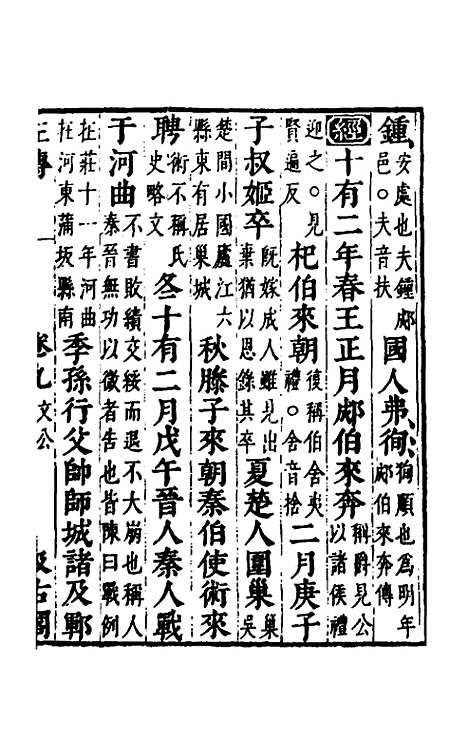 鍾安處也夫鍾郕邑○夫音扶國人弗徇徇順也為明年郕伯來奔傳
經十有二年春王正月郕伯來奔稱爵見公以諸侯禮
迎之○見賢遍反杞伯來朝復稱伯舍夷禮○舍音捨二月庚子
子叔姬卒既嫁成人雖見出棄猶以恩錄其卒夏楚人圍巢巢吳
楚間小國廬江六縣東有居巢城秋滕子來朝秦伯使術來
聘術不稱氏史略文冬十有二月戊午晉人秦人戰
于河曲不書敗績交綏而退不大崩也稱人秦晉無功以微者告也皆陳曰戰例
在莊十一年河曲在河東蒲坂縣南季孫行父帥師城諸及鄆
左傳 卷九 文公 汲古閣